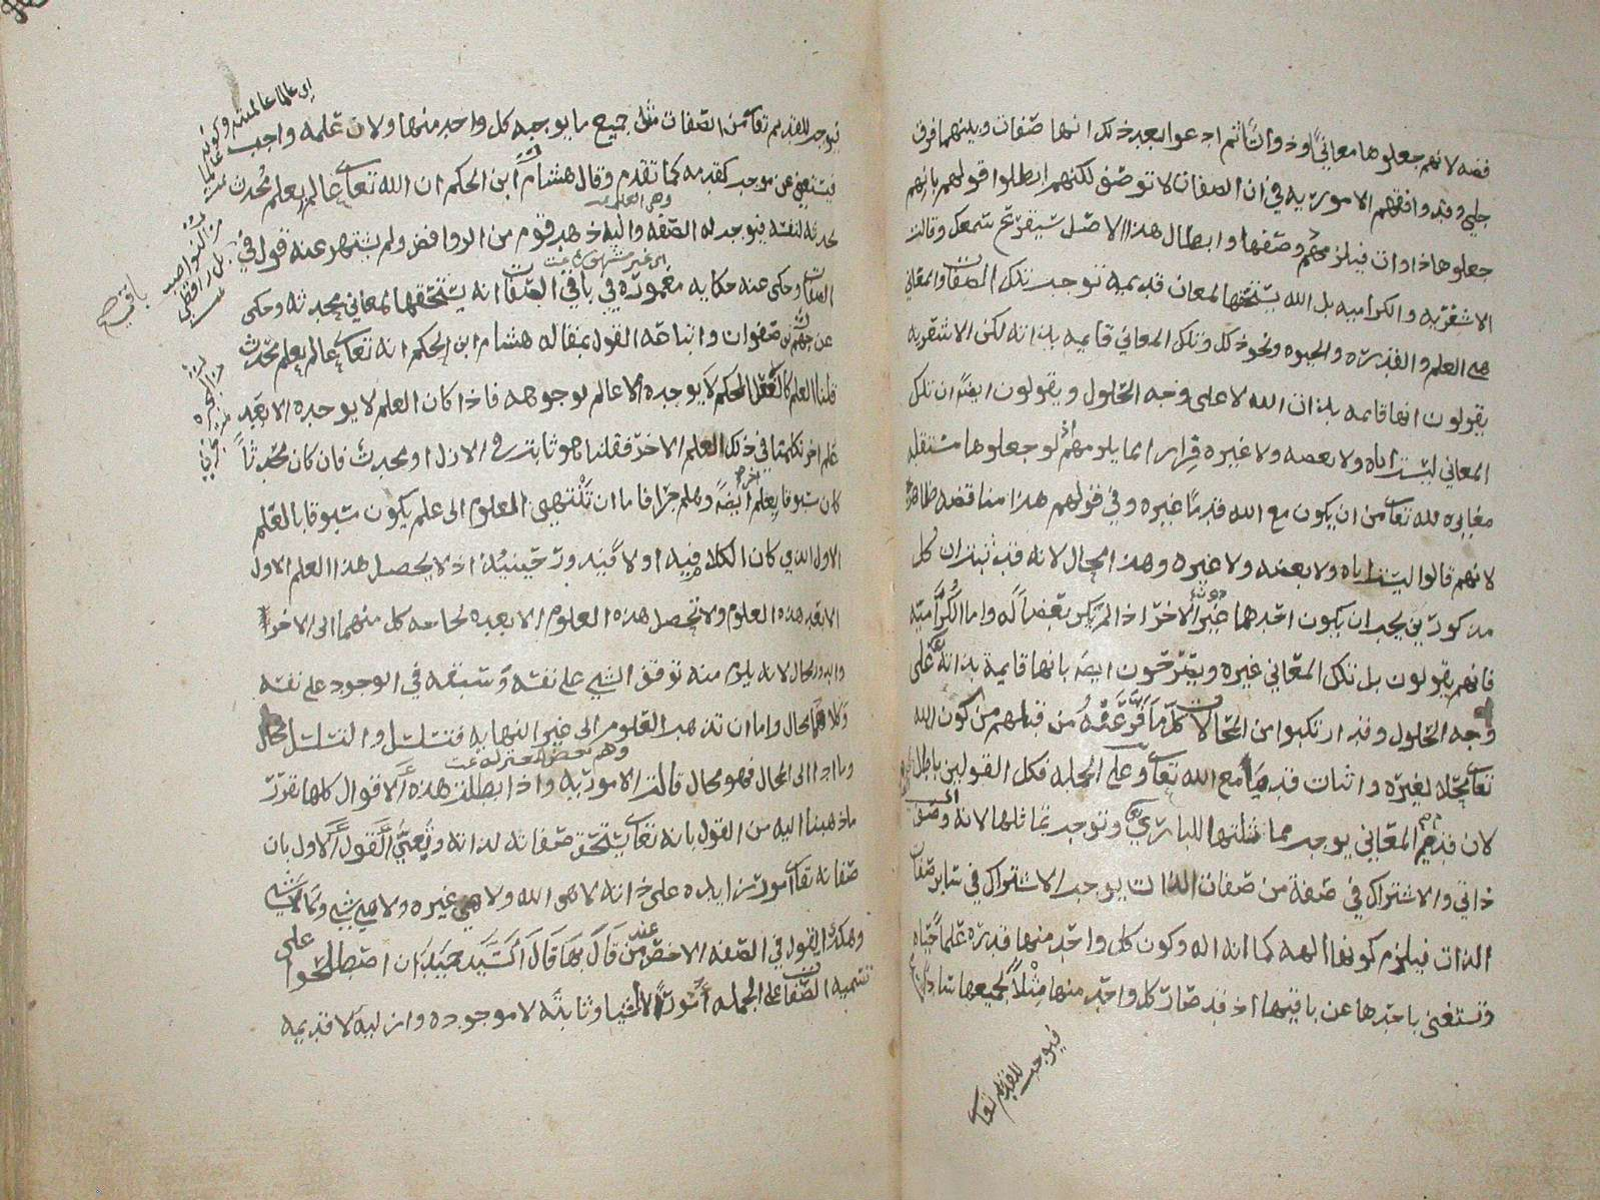 فضه لانهم جعلوها معاني وذواتا ثم ادعوا بعد ذلك انها صفات وبينهما فرق
جلي وقد وافقهم الامورية في ان الصفات لا توصف لكنهم ابطلوا قولهم بانهم
جعلوها ذاوات فيلزمهم وصفها وابطال هذا الاصل سيقرع سمعك وقالت
الاشعرية والكرامية بل الله يستحقها لمعان قديمة توجب تلك الصفات والمعاني
هي العلم والقدرة والحيوه ونحو ذلك وتلك المعاني قايمه بذاته لكن الاشعرية
يقولون انها قايمه بذات الله لا على وجه الحلول ويقولون ايضا ان تلك
المعاني ليست اياه ولا بعضه ولا غيره قرارا مما يلزمهم لو جعلوها مستقلة
مغايره لله تعالى من ان يكون مع الله قديما غيره وفي قولهم هذا مناقضه ظاهرة
لانهم قالوا ليست اياه ولا بعضه ولا غيره وهذا محال لانه قد ثبت ان كل
مذكورين يجب ان يكون احدهما غير الاخر اذا لم يكن بعضا له واما الكرامية
فانهم يقولون بل تلك المعاني غيره ويعترفون ايضا بانها قايمة بذاته تعالى على
وجه الحلول وقد ارتكبوا من المحالات كلما فر عنه من قبلهم من كون الله
تعالى محلا لغيره واثبات قديم مع الله تعالى وعلى الجمله فكل القولين باطل
لان قدم المعاني يوجب مماثلتها للباري وتوجب تماثلها لانه وصف
ذاتي والاشتراك في صفة من صفات الذات يوجب الاشتراك في سائر صفات
الذات فيلزم كونها الهه كما انه اله وكون كل واحد منها قدرة علما حياه
وتستغني باحدها عن باقيها اذ قد صار كل واحد منها مثلا لجميعها
فيوجب للقديم تعالى
فيوجب للقديم تعالى من الصفات مثل جميع ما يوجبه كل واحد منها ولان علمه واجب
فيستغني عن موجد كقدمه كما تقدم وقال هشام ابن الحكم ان الله تعالى عالم بعلم محدث
يحدثه لنفسه فيوجب له الصفه واليه ذهب قوم من الروافض ولم يشتهر عنه قول في باقي
الصفات وحكى عنه حكايه مغموره في باقي الصفات انه يستحقها لمعاني محدثه وحكى
عن جهم بن صفوان واتباعه القول بمقاله هشام ابن الحكم انه تعالى عالم بعلم محدث
قلنا العلم كالفعل المحكم لا يوجده الا عالم بوجوهه فاذا كان العلم لا يوجده الا بعد
علم اخر تكلمنا في ذلك العلم الاخر فقلنا هو ثابت في الازل او محدث فان كان محدثا
كان مسبوقا بعلم اخر ايضا وهلم جرا فاما ان تنتهي العلوم الى علم يكون مسبوقا بالعلم
الاول الذي كان الكلام فيه اولا فيدور حينئذ اذ لا يحصل هذا العلم الاول
الا بعد هذه العلوم ولا تحصل هذه العلوم الا بعده لحاجه كل منهما الى الاخر
والدور محال لانه يلزم منه توقف الشي على نفسه وسبقه في الوجود على نفسه
وكلاهما محال واما ان تذهب العلوم الى غير النهايه فتسلسل والتسلسل محال
وما ادا الى المحال فهو محال قالت الامورية واذا بطلت هذه الاقوال كلها تقرر
ما ذهبنا اليه من القول بانه تعالى يستحق صفاته لذاته ونعني القول الاول بان
صفاته تعالى امور زايده على ذاته لا هي الله ولا هي غيره ولا هي شي ولا لا شي
وهكذا القول في الصفه الاخص عند من قال بها قال السيد حميدان اصطلحوا على
تسميه الصفات على الجمله امورا لا اشيا وثابته لا موجوده وازلية لا قديمه